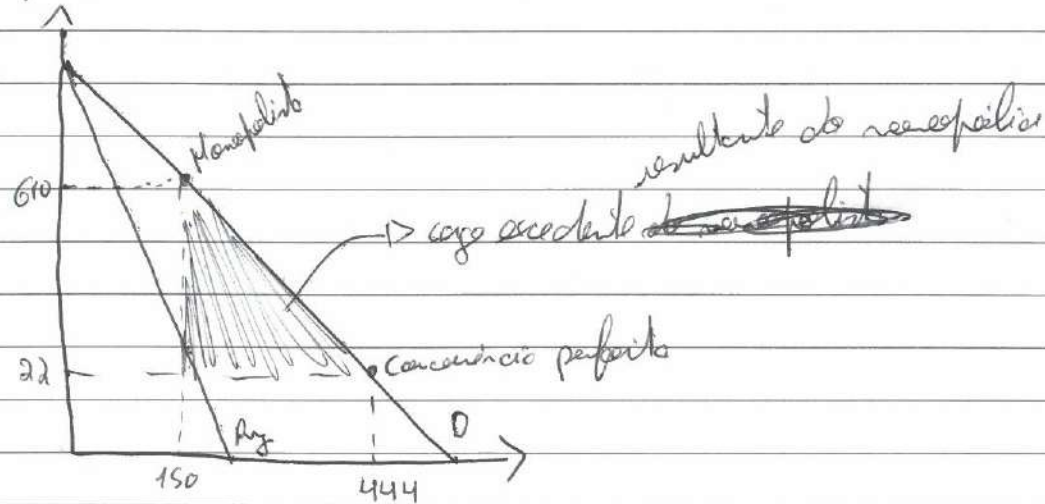 Monopolista
resultante do monopólio
610
▷ carga excedente
22
Concorrência perfeita
Rmg
D
150
444